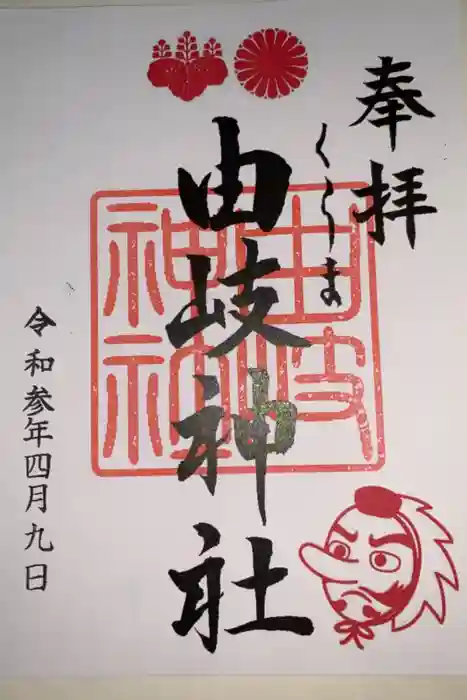 奉拝
くらま
由岐神社
由岐神社
令和参年四月九日